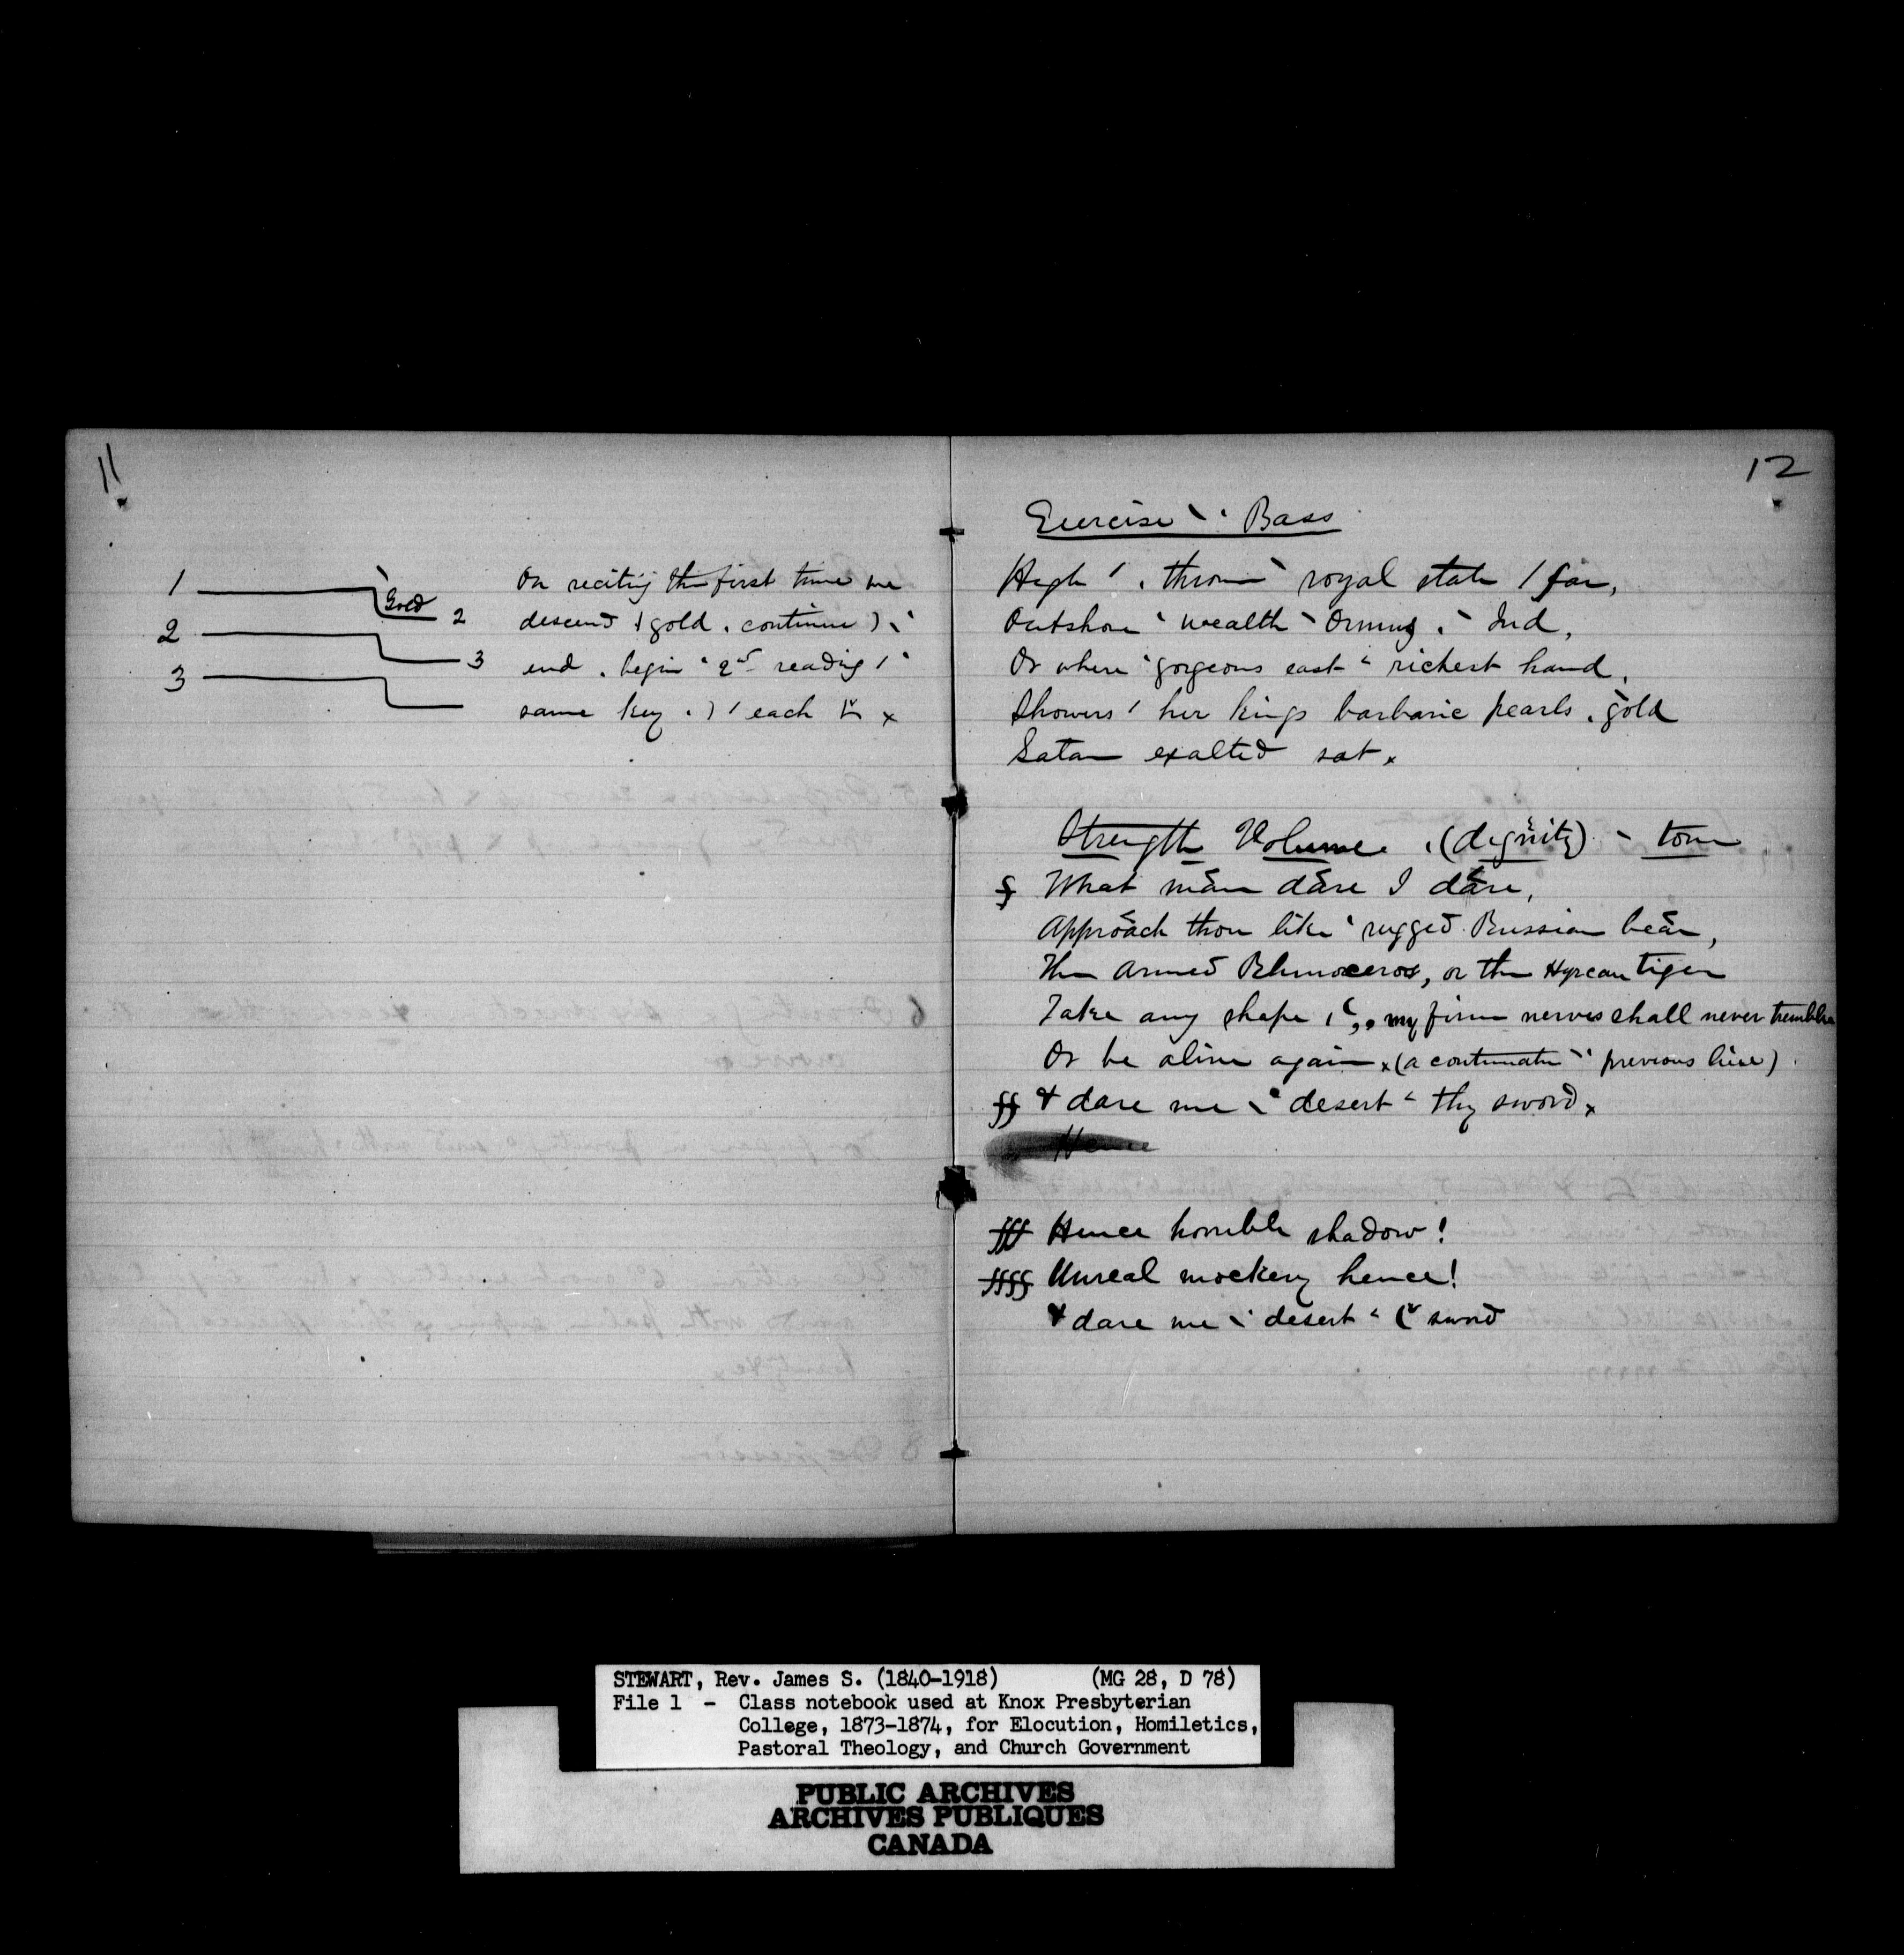 11
1
Gold 2
2
3
3
On reciting the first time we
descend / gold . continue ) \ '
end . begin ' 2d reading / '
same key . ) / each x
12
Exercise \ ' Bass
High / . throne \ royal state / far,
Outshone ' wealth \ Ormus . \ Ind,
Or where ' gorgeous east ' richest hand,
Showers / her kings barbaric pearls . gold
Satan exalted sat x
Strength Volume . (dignity) \ tone
f What man dare I dare,
Approach thou like ' rugged Russian bear,
The armed Rhinoceros, or the Hyrcan tiger
Take any shape my firm nerves shall never tremble
Or be alive again x (a continuatn \ ' previous line)
ff & dare me \ ' desert ' thy sword x
Hence
fff Hence horrible shadow!
ffff Unreal mockery hence!
& dare me \ ' desert ' sword
STEWART, Rev. James S. (1840-1918) (MG 28, D 78)
File 1 - Class notebook used at Knox Presbyterian
College, 1873-1874, for Elocution, Homiletics,
Pastoral Theology, and Church Government
PUBLIC ARCHIVES
ARCHIVES PUBLIQUES
CANADA